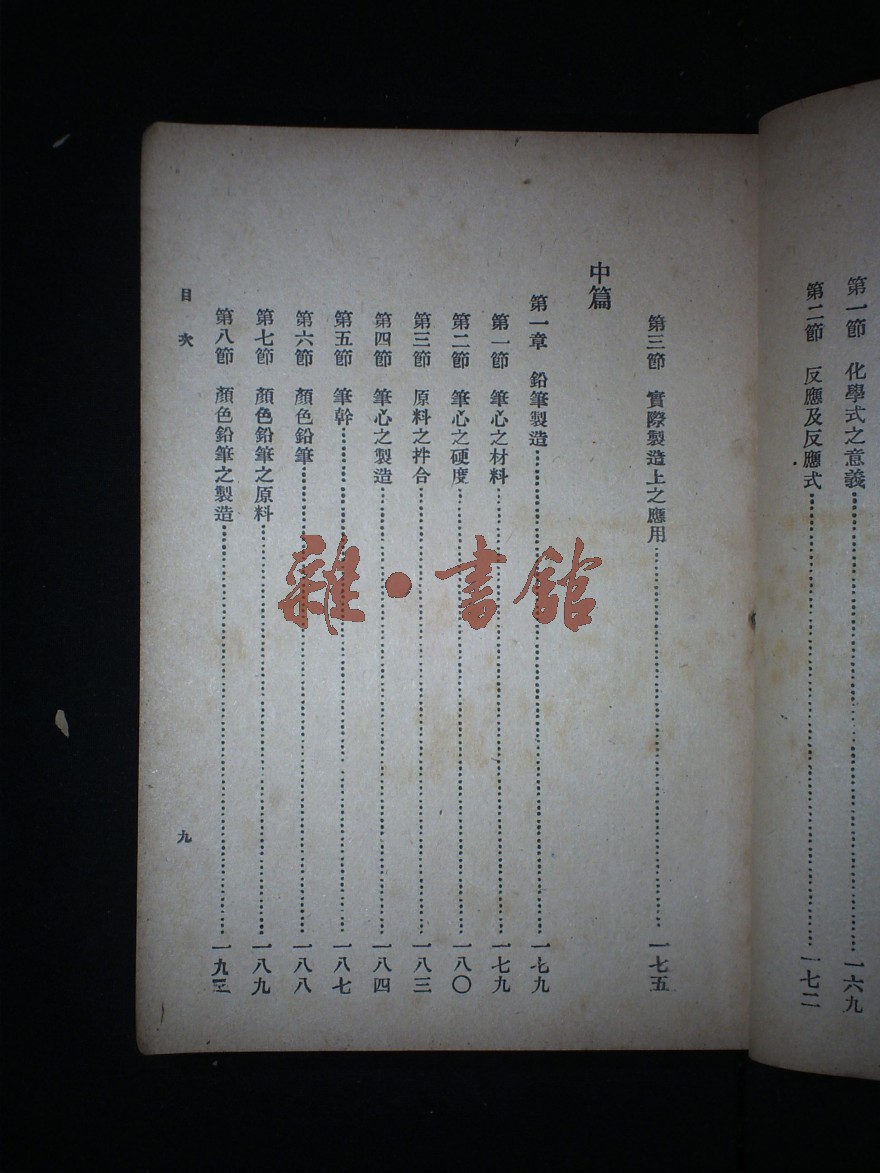 第一節　化學式之意義……一六九
第二節　反應及反應式……一七二
第三節　實際製造上之應用……一七五
中篇
第一章　鉛筆製造……一七九
第一節　筆心之材料……一七九
第二節　筆心之硬度……一八〇
第三節　原料之拌合……一八三
第四節　筆心之製造……一八四
第五節　筆幹……一八七
第六節　顏色鉛筆……一八八
第七節　顏色鉛筆之原料……一八九
第八節　顏色鉛筆之製造……一九三
目次
九
雜·書館